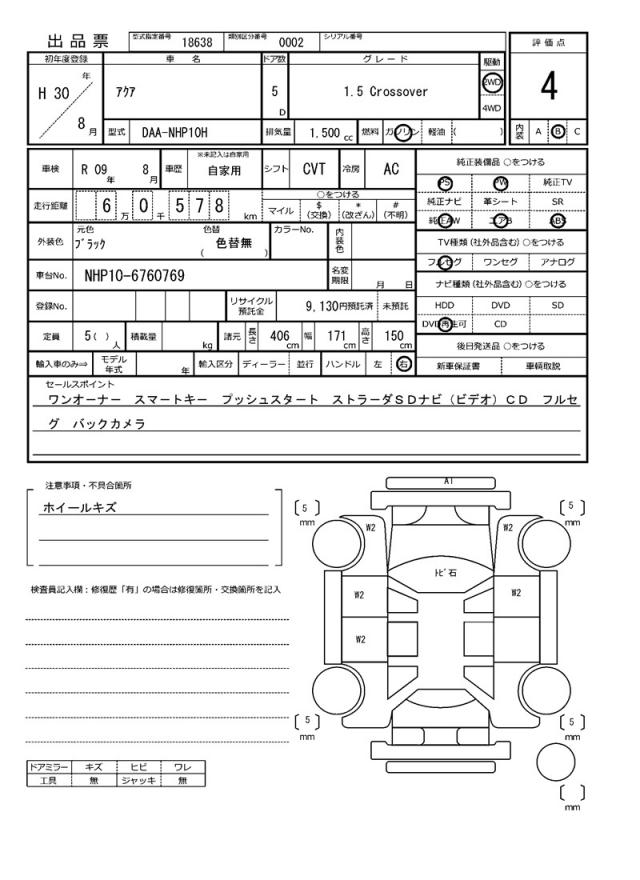 出品票 型式指定番号 18638 類別区分番号 0002 シリアル番号
評価点
4
内装 A B C
初年度登録 車名 ドア数 グレード 駆動
H 30 年 8 月 アクア 5 D 1.5 Crossover 2WD 4WD
型式 DAA-NHP10H 排気量 1.500 cc 燃料 ガソリン 軽油 ( )
車検 R 09 年 8 月 車歴 ※未記入は自家用 自家用 シフト CVT 冷房 AC
走行距離 6 万 0 千 5 7 8 km ○をつける
マイル $ (交換) * (改ざん) # (不明)
外装色 元色 ブラック 色替 色替無 ( ) カラーNo. 内装色
車台No. NHP10-6760769 名変期限 月 日
登録No. リサイクル預託金 9,130円預託済 未預託
定員 5( ) 人 積載量 kg 諸元 長さ 406 cm 幅 171 cm 高さ 150 cm
輸入車のみ⇒ モデル年式 年 輸入区分 ディーラー 並行 ハンドル 左 右
純正装備品 ○をつける
PS PW 純正TV
純正ナビ 革シート SR
純正AW エアB ABS
TV種類 (社外品含む) ○をつける
フルセグ ワンセグ アナログ
ナビ種類 (社外品含む) ○をつける
HDD DVD SD
DVD再生可 CD
後日発送品 ○をつける
新車保証書 車輌取説
セールスポイント
ワンオーナー スマートキー プッシュスタート ストラーダSDナビ(ビデオ)CD フルセ
グ バックカメラ
注意事項・不具合箇所
ホイールキズ
検査員記入欄：修復歴「有」の場合は修復箇所・交換箇所を記入
A1
5 mm
5 mm
W2
W2
トビ石
W2
W2
W2
5 mm
5 mm
mm
ドアミラー キズ ヒビ ワレ
工具 無 ジャッキ 無